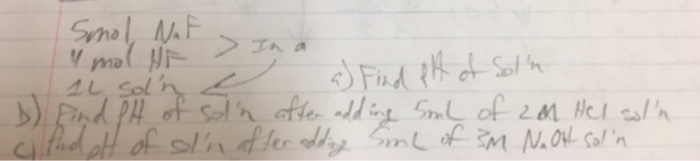 5mol NaF
4 mol HF > In a
1L sol'n
a) Find pH of sol'n
b) Find pH of sol'n after adding 5mL of 2M HCl sol'n
c) find pH of sol'n after adding 5mL of 3M NaOH sol'n